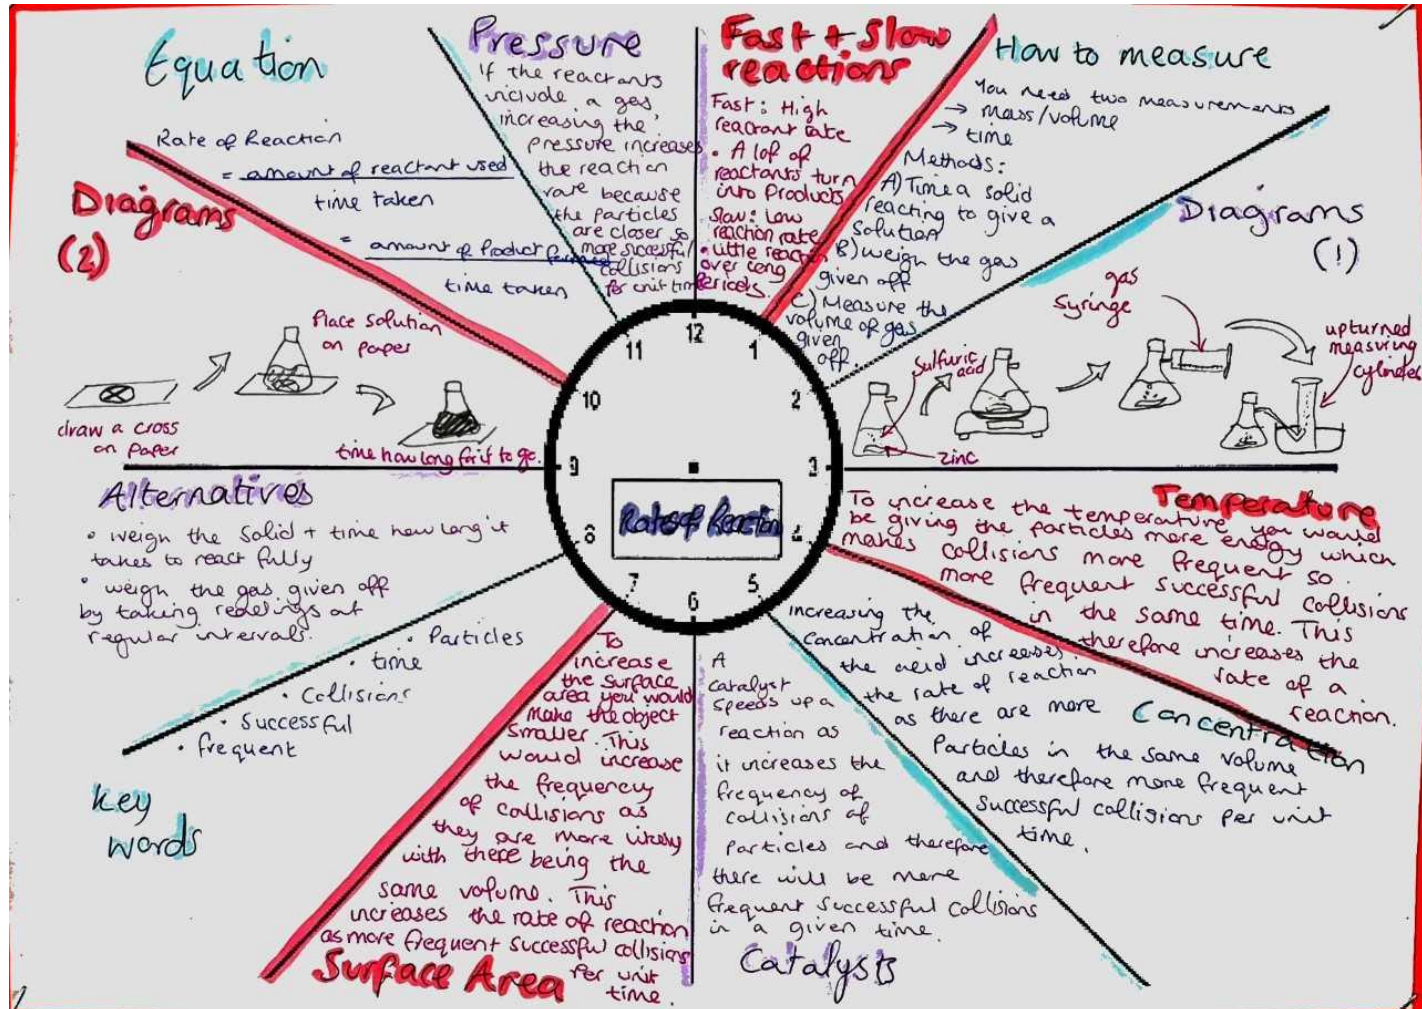 Equation
Rate of Reaction
= amount of reactant used
time taken
= amount of Product formed
time taken
Pressure
If the reactants
include a gas
increasing the
pressure increases
the reaction
rate because
the particles
are closer so
more successful
collisions
for unit time
Fast + Slow
reactions
Fast: High
reactant rate
• A lof of
reactants turn
into Products
Slow: Low
reaction rate
• Little reacten
over long
Periods.
How to measure
You need two measurements
→ mass/volume
→ time
Methods:
A) Time a solid
reacting to give a
solution
B) weigh the gas
given off
C) Measure the
volume of gas
given
off.
Diagrams
(1)
gas
syringe
upturned
measuring
cylinder
sulfuric
acid
zinc
Temperature
To increase the temperature you would
be giving the particles more energy which
makes collisions more frequent so
more frequent successful collisions
in the same time. This
therefore increases the
rate of a
reaction.
Concentration
increasing the
concentration of
the acid increases
the rate of reaction
as there are more
Particles in the same volume
and therefore more frequent
successful collisions per unit
time.
A
catalyst
speeds up a
reaction as
it increases the
frequency of
collisions of
particles and therefore
there will be more
frequent successful collisions
in a given time.
Catalysts
To
increase
the surface
area you would
make the object
smaller. This
would increase
the frequency
of collisions as
they are more likely
with there being the
same volume. This
increases the rate of reaction
as more frequent successful collisions
Per unit
time.
Surface Area
Key
words
• Particles
• time
• Collisions
• Successful
• frequent
Alternatives
• weigh the solid + time how long it
takes to react fully
• weigh the gas given off
by taking readings at
regular intervals.
Diagrams
(2)
Place solution
on paper
draw a cross
on paper
time how long for it to go.
12
1
2
3
4
5
6
7
8
9
10
11
Rates of Reaction